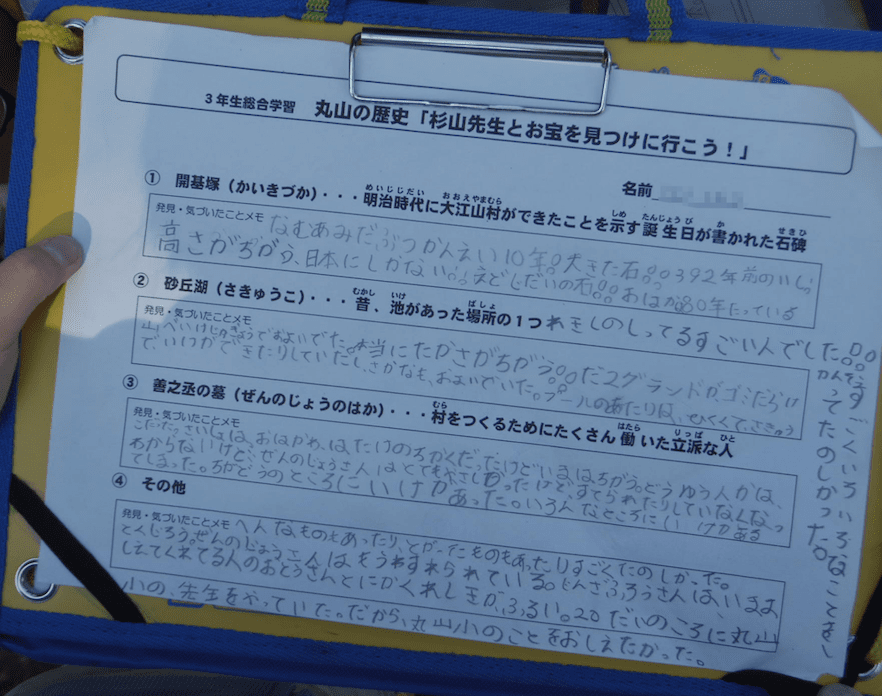 3年生総合学習 丸山の歴史「杉山先生とお宝を見つけに行こう！」
名前
① 開基塚（かいきづか）・・・明治時代に大江山村ができたことを示す誕生日が書かれた石碑
めいじじだい おおえやまむら しめ たんじょうび か せきひ
発見・気づいたことメモ
なむあみだぶつかんえい10年。大きた石。392年前のいし。
高さがちがう、日本にしかない。えどじだいの石。おはか80年たっている
② 砂丘湖（さきゅうこ）・・・昔、池があった場所の1つ
むかし いけ ばしょ
れきしのしってるすごい人でした。
発見・気づいたことメモ
山ぺいけじ
でおよいでた。本当にたかさがちがう。だ2グランドがゴミだらけ
でいけができたりしていたし、さかなも、およいでいた。プールのあたりは、ひくくて、さきゅう
③ 善之丞の墓（ぜんのじょうのはか）・・・村をつくるためにたくさん働いた立派な人
むら はたら りっぱ ひと
発見・気づいたことメモ
こだった。さいしょは、おはかわ、はたけのちかくだったけどいまはちがう。どうゆう人かは、
わからないけど、ぜんのじょうさんはとてもやさしかったけど、すてられたりしていなくなっ
てしまった。ちかどうのところにいけがあった。いろんなところにいけがある
④ その他
発見・気づいたことメモ
へんなものもあったり、とがったものもあったりすごくたのしかった。
とくじろう。ぜんのじょうさんはもうわすれられている。じんざぶろうさんは、いまお
しえてくれてる人のおとうさんとにかくれきしが、ふるい。20だいのころに丸山
小の、先生をやっていた。だから、丸山小のことをおしえたかった。
すごくいろいろなことをし
れてたのしかった。